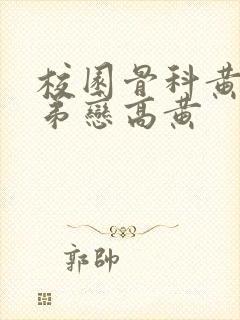 校園骨科黃
弟戀高黃
郭帥